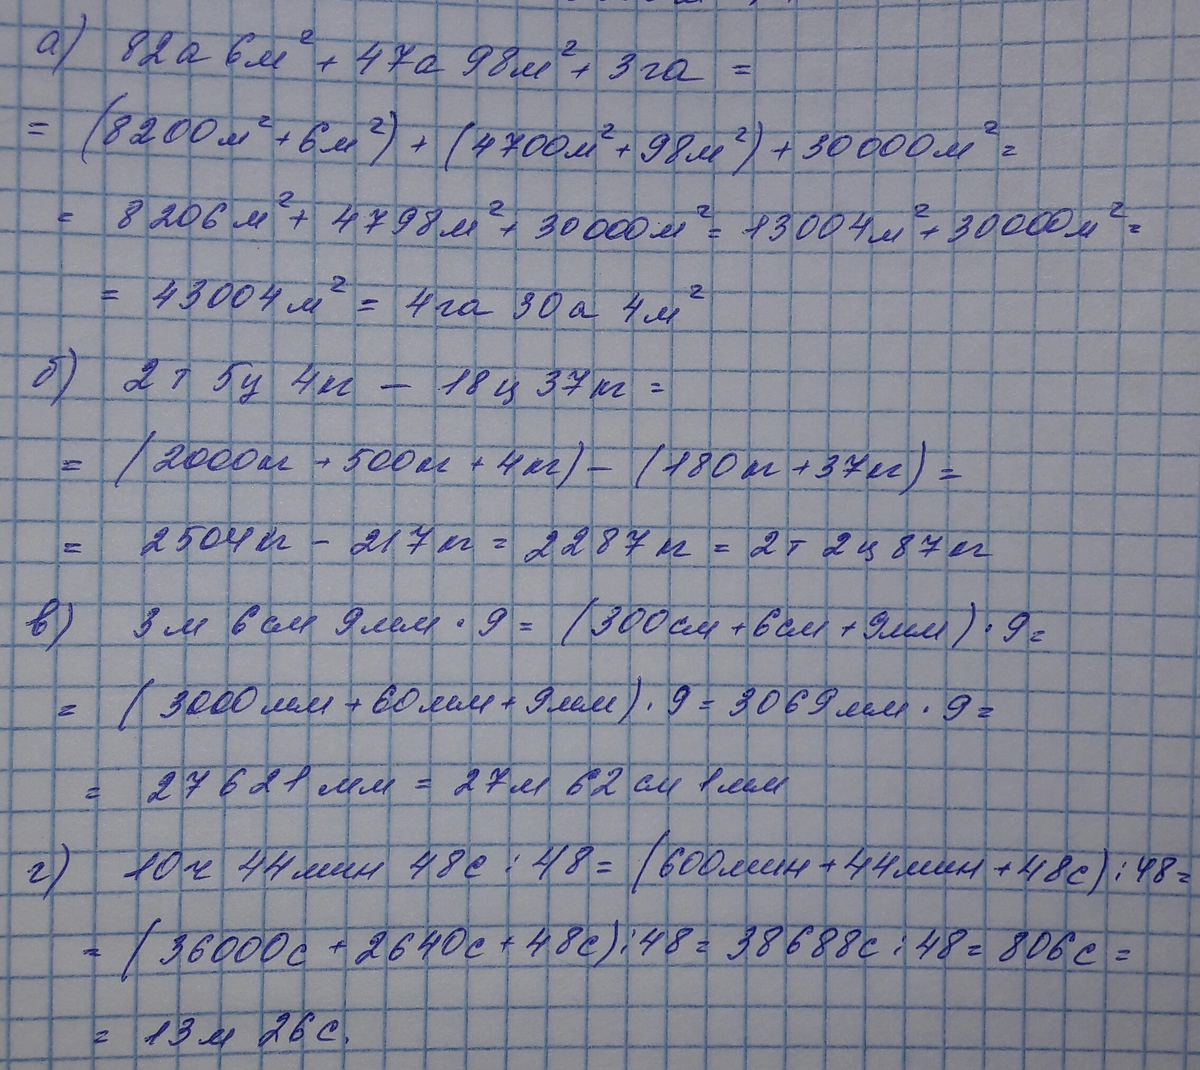 а) 82а 6м² + 47а 98м² + 3га =
= (8200м² + 6м²) + (4700м² + 98м²) + 30000м² =
= 8206м² + 4798м² + 30000м² = 13004м² + 30000м² =
= 43004м² = 4га 30а 4м²
б) 2т 5ц 4кг - 18ц 37кг =
= (2000кг + 500кг + 4кг) - (180кг + 37кг) =
= 2504кг - 217кг = 2287кг = 2т 2ц 87кг
в) 3м 6см 9мм · 9 = (300см + 6см + 9мм) · 9 =
= (3000мм + 60мм + 9мм) · 9 = 3069мм · 9 =
= 27621мм = 27м 62см 1мм
г) 10ч 44мин 48с : 48 = (600мин + 44мин + 48с) : 48 =
= (36000с + 2640с + 48с) : 48 = 38688с : 48 = 806с =
= 13м 26с.